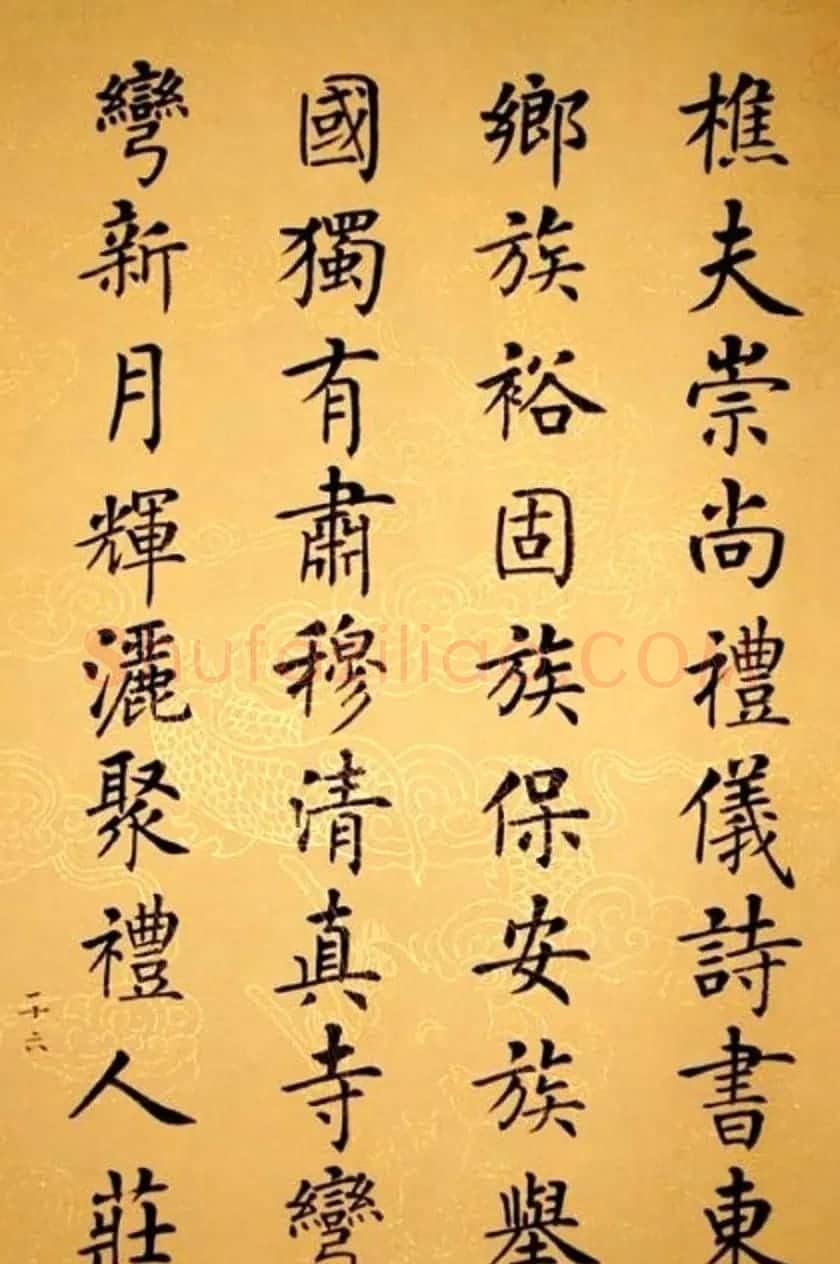 樵夫崇尚禮儀詩書東
鄉族裕固族保安族舉
國獨有肅穆清真寺彎
彎新月輝灑聚禮人莊
二十六